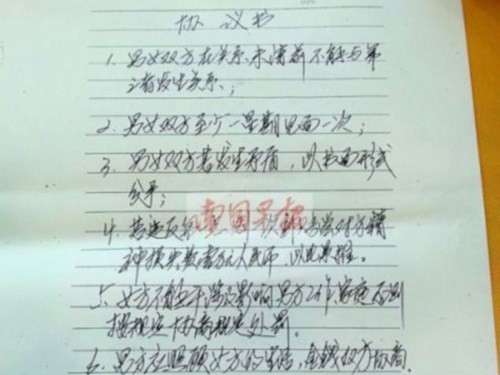 协议书
1. 男女双方在关系未清前不能与第
三者发生关系;
2. 男女双方至少一星期见面一次;
3. 男女双方若发生矛盾,以书面形式
分手;
南国早报
4. 若违反第
对方精
神损失数壹万元人民币,以此类推。
5. 女方不能干涉及影响男方工作、家庭否则
按规定协商规定处罚。
6. 男方应照顾女方的生活,金钱双方协商。